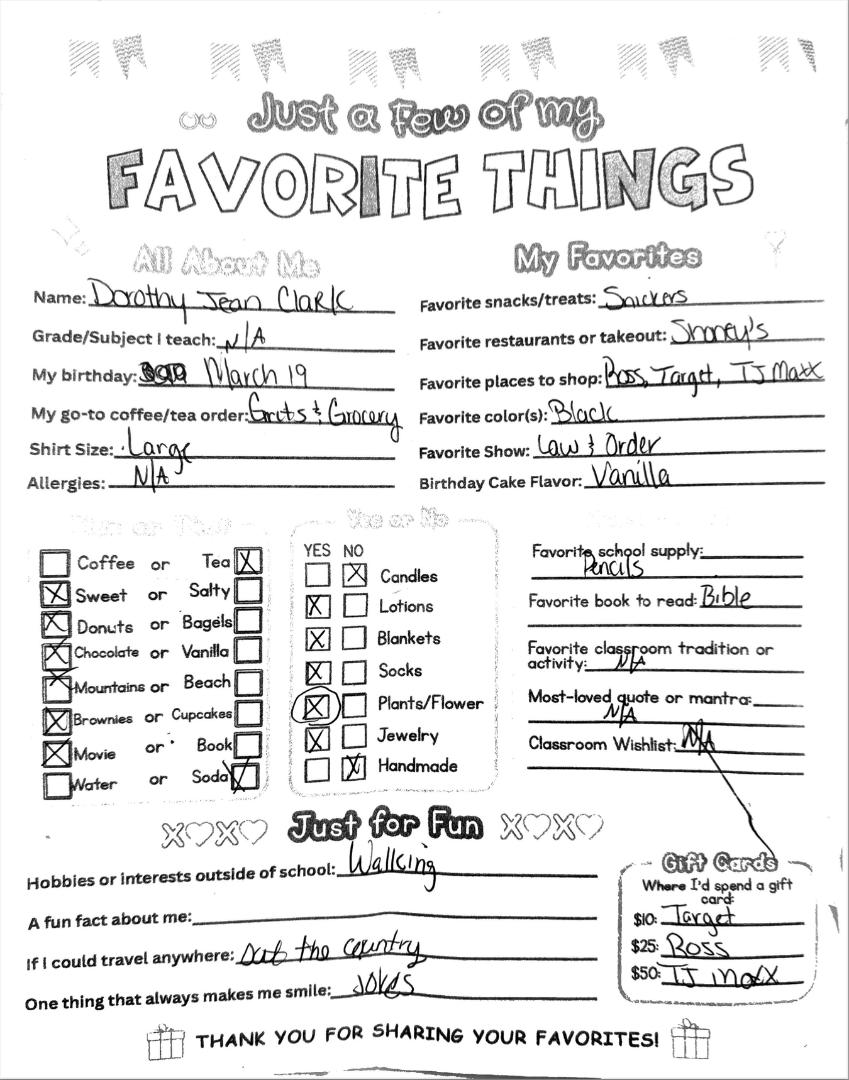 Just a Few of my
FAVORITE THINGS
All About Me
Name: Dorothy Jean Clark
Grade/Subject I teach: N/A
My birthday: March 19
My go-to coffee/tea order: Grits & Grocery
Shirt Size: Large
Allergies: N/A
My Favorites
Favorite snacks/treats: Snickers
Favorite restaurants or takeout: Shoney's
Favorite places to shop: Ross, Target, TJ Maxx
Favorite color(s): Black
Favorite Show: Law & Order
Birthday Cake Flavor: Vanilla
This or That
Coffee or Tea X
X Sweet or Salty
X Donuts or Bagels
X Chocolate or Vanilla
X Mountains or Beach
X Brownies or Cupcakes
X Movie or Book
Water or Soda X
Yes or No
YES NO
X Candles
X Lotions
X Blankets
X Socks
X Plants/Flower
X Jewelry
X Handmade
Favorite school supply:
Pencils
Favorite book to read: Bible
Favorite classroom tradition or
activity: N/A
Most-loved quote or mantra:
N/A
Classroom Wishlist: N/A
XOXO Just for Fun XOXO
Hobbies or interests outside of school: Walking
A fun fact about me:
If I could travel anywhere: out the country
One thing that always makes me smile: Jokes
Gift Cards
Where I'd spend a gift
card:
$10: Target
$25: Ross
$50: TJ Maxx
THANK YOU FOR SHARING YOUR FAVORITES!